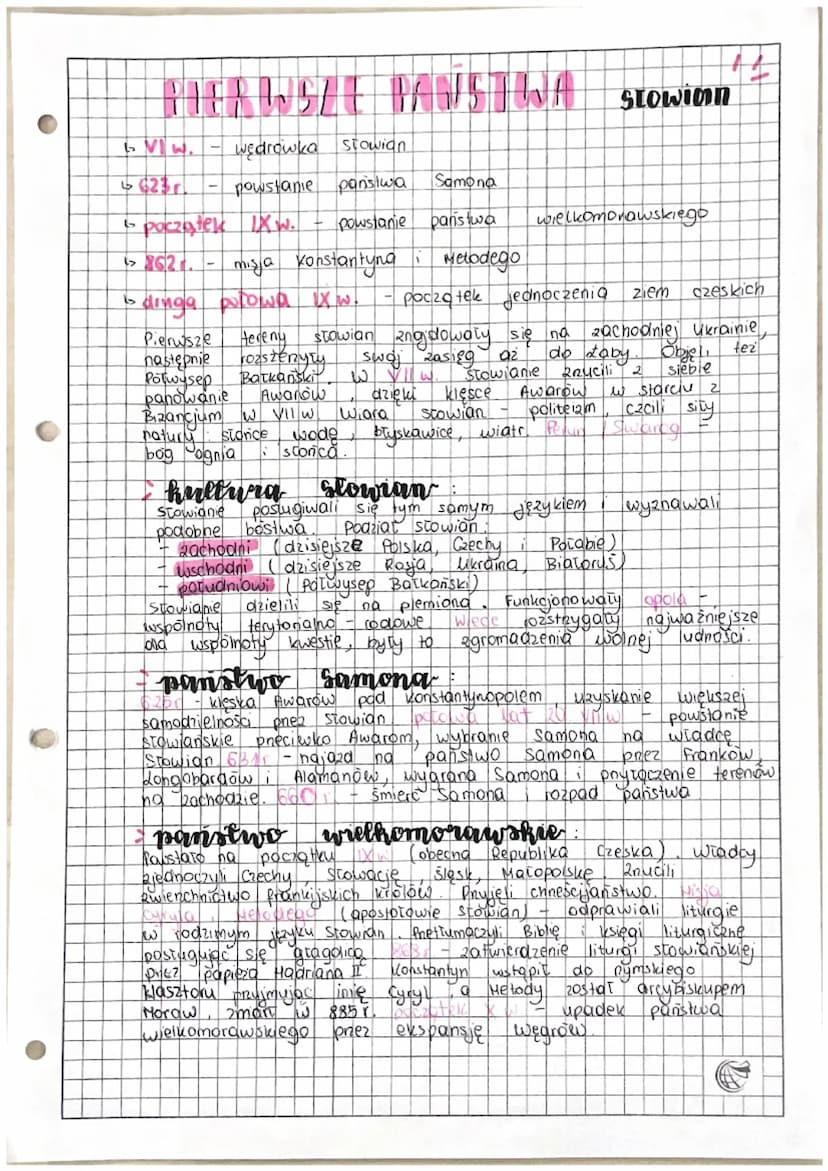 PIERWSZE PAŃSTWA słowian
↳ VI w. - wędrówka słowian
↳ 623 r. - powstanie państwa Samona
↳ początek IX w. - powstanie państwa wielkomorawskiego
↳ 862 r. - misja Konstantyna i Metodego
↳ druga połowa IX w. - początek jednoczenia ziem czeskich
Pierwsze tereny słowian znajdowały się na zachodniej Ukrainie,
następnie rozszerzyły swój zasięg aż do Łaby. Objęli też
Półwysep Bałkański. W VII w. Słowianie zrzucili z siebie
panowanie Awarów, dzięki klęsce Awarów w starciu z
Bizancjum w VII w. Wiara słowian - politeizm, czcili siły
natury: słońce, wodę, błyskawice, wiatr. Perun, Swaróg -
bóg ognia i słońca.
kultura słowian:
Słowianie posługiwali się tym samym językiem i wyznawali
podobne bóstwa. Podział słowian:
- zachodni (dzisiejsze Polska, Czechy i Połabie)
- wschodni (dzisiejsze Rosja, Ukraina, Białoruś)
- południowi (Półwysep Bałkański)
Słowianie dzielili się na plemiona. Funkcjonowały opola -
wspólnoty terytorialno - rodowe. Wiece rozstrzygały najważniejsze
dla wspólnoty kwestie, były to zgromadzenia wolnej ludności.
państwo Samona:
626r - klęska Awarów pod Konstantynopolem, uzyskanie większej
samodzielności przez słowian. połowa lat 20 VII w - powstanie
słowiańskie przeciwko Awarom, wybranie Samona na władcę
Słowian. 631r - najazd na państwo Samona przez Franków,
Longobardów i Alamanów, wygrana Samona i przyłączenie terenów
na zachodzie. 660 r - śmierć Samona i rozpad państwa
państwo wielkomorawskie:
Powstało na początku IX w (obecna Republika Czeska). Władcy
zjednoczyli Czechy, Słowację, Śląsk, Małopolskę. Zrzucili
zwierzchnictwo frankijskich królów. Przyjęli chrześcijaństwo. Misja
Cyryla i Metodego (apostołowie słowian) - odprawiali liturgie
w rodzimym języku słowian. Przetłumaczyli Biblię i księgi liturgiczne
posługując się głagolicą. 868r - zatwierdzenie liturgi słowiańskiej
przez papieża Hadriana II. Konstantyn wstąpił do rzymskiego
klasztoru przyjmując imię Cyryl, a Metody został arcybiskupem
Moraw, zmarł w 885 r. początek X w - upadek państwa
wielkomorawskiego przez ekspansję Węgrów.